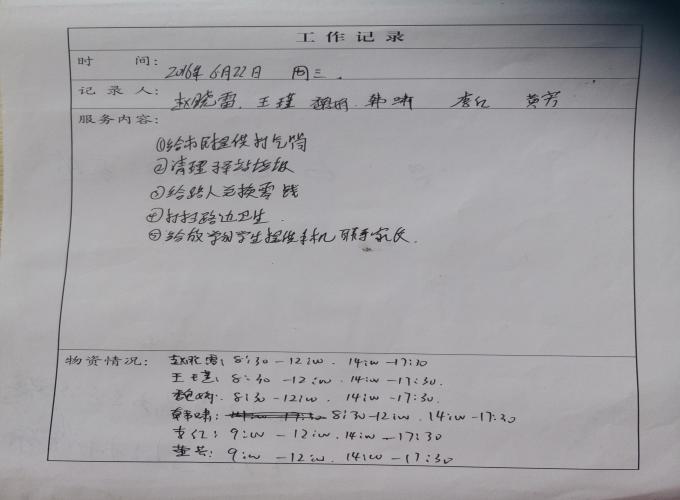 工作记录
时 间: 2016年6月22日 周三.
记录人: 赵晓雷. 王瑾 韩啸 李仁 黄芳
服务内容:
①给市民提供打气筒
②清理驿站垃圾
③给路人兑换零钱
④打扫路边卫生.
⑤给放学的学生提供手机联系家长.
物资情况: 8:30-12:00. 14:00-17:30
8:30-12:00. 14:00-17:30.
8:30-12:00. 14:00-17:30.
8:30-12:00. 14:00-17:30
9:00-12:00. 14:00-17:30
9:00-12:00. 14:00-17:30